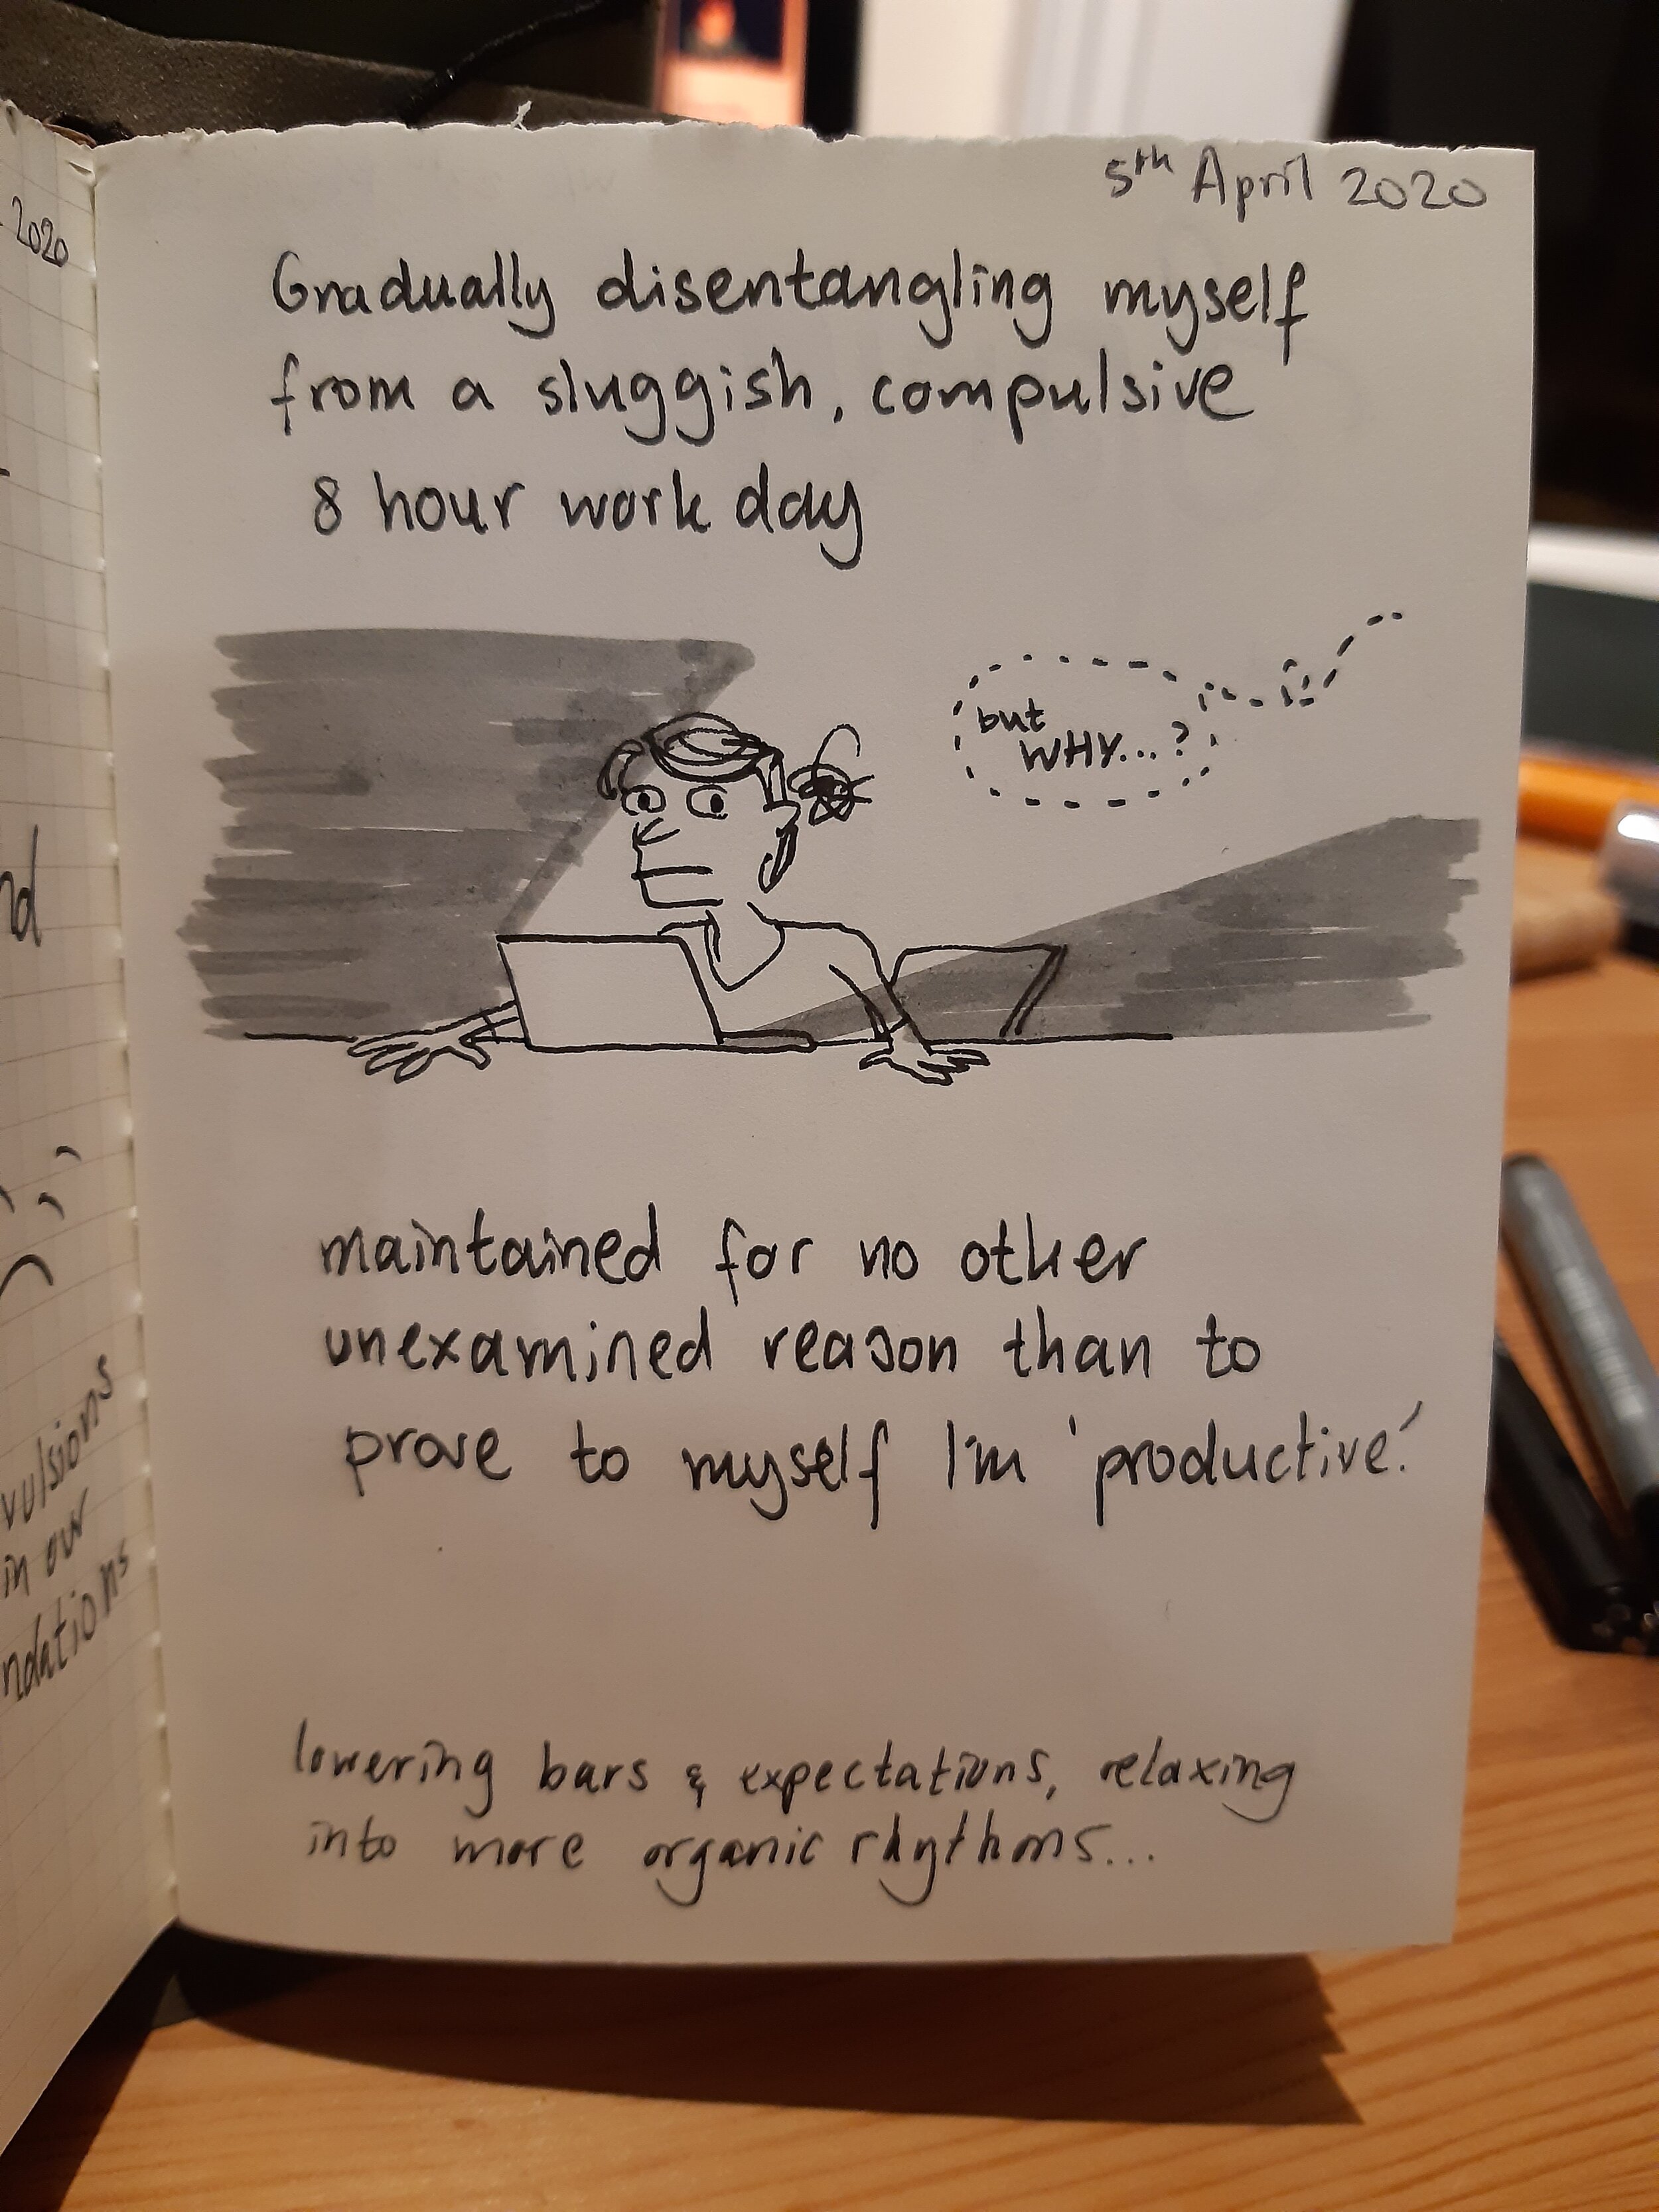 2020
nd
vulsions
in our
ndations
5th April 2020
Gradually disentangling myself
from a sluggish, compulsive
8 hour work day
but
WHY...?
maintained for no other
unexamined reason than to
prove to myself I'm 'productive.'
lowering bars & expectations, relaxing
into more organic rhythms...